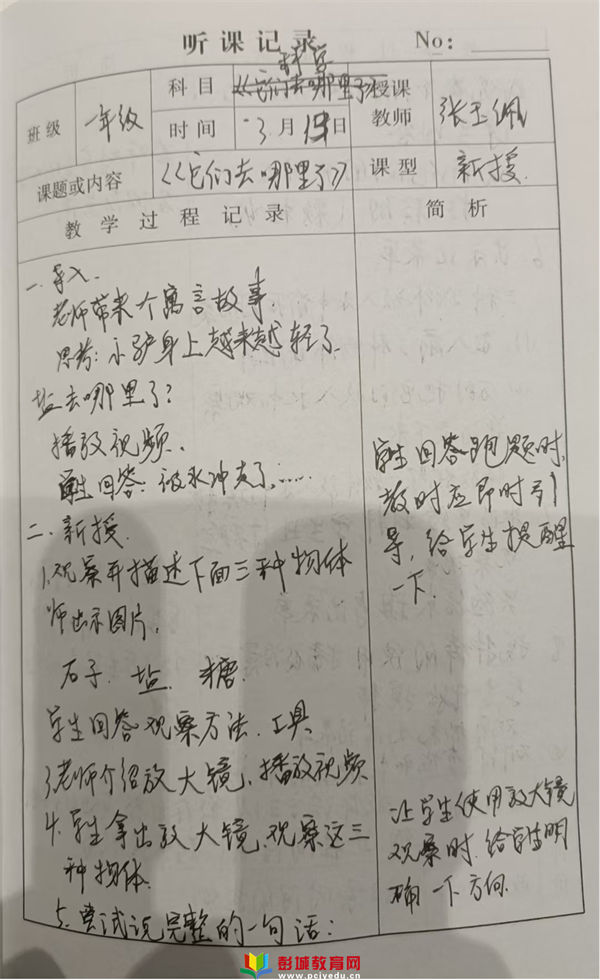 听课记录 No:
科学
班级 一年级 科目 《它们去哪里了》 授课教师 张玉佩
时间 3月19日
课题或内容 《它们去哪里了》 课型 新授.
教学过程记录 简析
一.导入.
老师带来个寓言故事.
思考:小驴身上越来越轻了
盐去哪里了?
播放视频.
学生回答:被水冲走了,……
二.新授.
1.观察并描述下面三种物体
师出示图片.
石子. 盐. 糖.
学生回答观察方法.工具
3.老师介绍放大镜,播放视频
4.学生拿出放大镜,观察这三
种物体.
5.尝试说完整的一句话:
学生回答跑题时,
教时应即时引
导,给学生提醒
一下.
让学生使用放大镜
观察时.给学生明
确一下方向.
彭城教育网
www.pcjyedu.cn